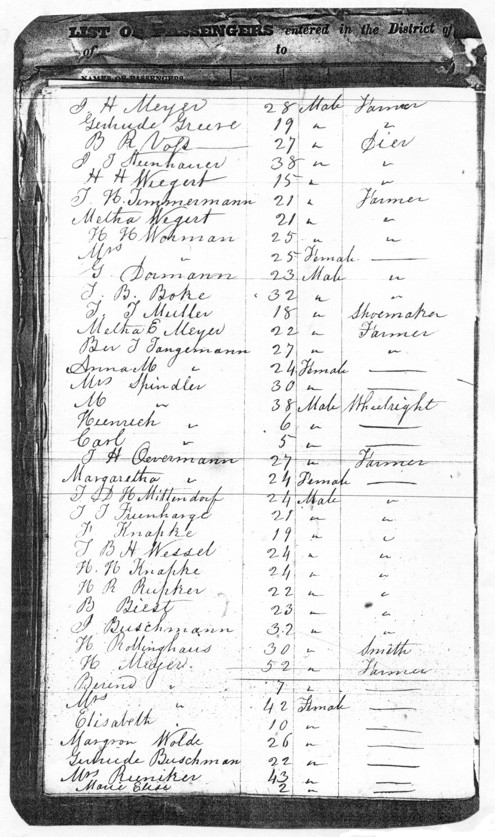 LIST OF PASSENGERS entered in the District of
of to
NAMES OF PASSENGERS
J H Meyer 28 Male Farmer
Gertrude Greeve 19 " "
B R Voß 27 "
J J Steinhauer 38 " "
H H Wiegert 15 " "
T. H. Timmermann 21 " Farmer
Metha Wegert 21 " "
H H Worman 25 " "
Mrs " 25 Female —
T Dormann 23 Male "
T. B. Boke 32 " "
T. T Muller 18 " Shoemaker
Metha E Meyer 22 " Farmer
Ber T Tangemann 27 " "
Anna M " 24 Female —
Mrs Spindler 30 " —
M " 38 Male Wheelright
Heinrich " 6 " —
Carl " 5 " —
J H Oevermann 27 " Farmer
Margaretha " 24 Female —
T D H Mittendorf 24 Male "
T T Frenharge 21 " "
F Knapke 19 " "
T B H Wessel 24 " "
H. H Knapke 24 " "
H R Rupker 22 " "
B Biest 23 " "
J Buschmann 32 " "
H Rollinghaus 30 " Smith
H Meyer. 52 " Farmer
Berend " 7 " —
Mrs " 42 Female —
Elisabeth " 10 " —
Margron Wolde 26 " —
Gertrude Buschman 22 " —
Mrs Runiker 43 " —
Marie Elise 2 " —